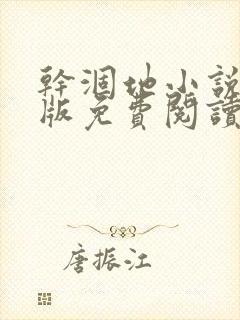 幹涸地小説
版免費閱讀
唐振江